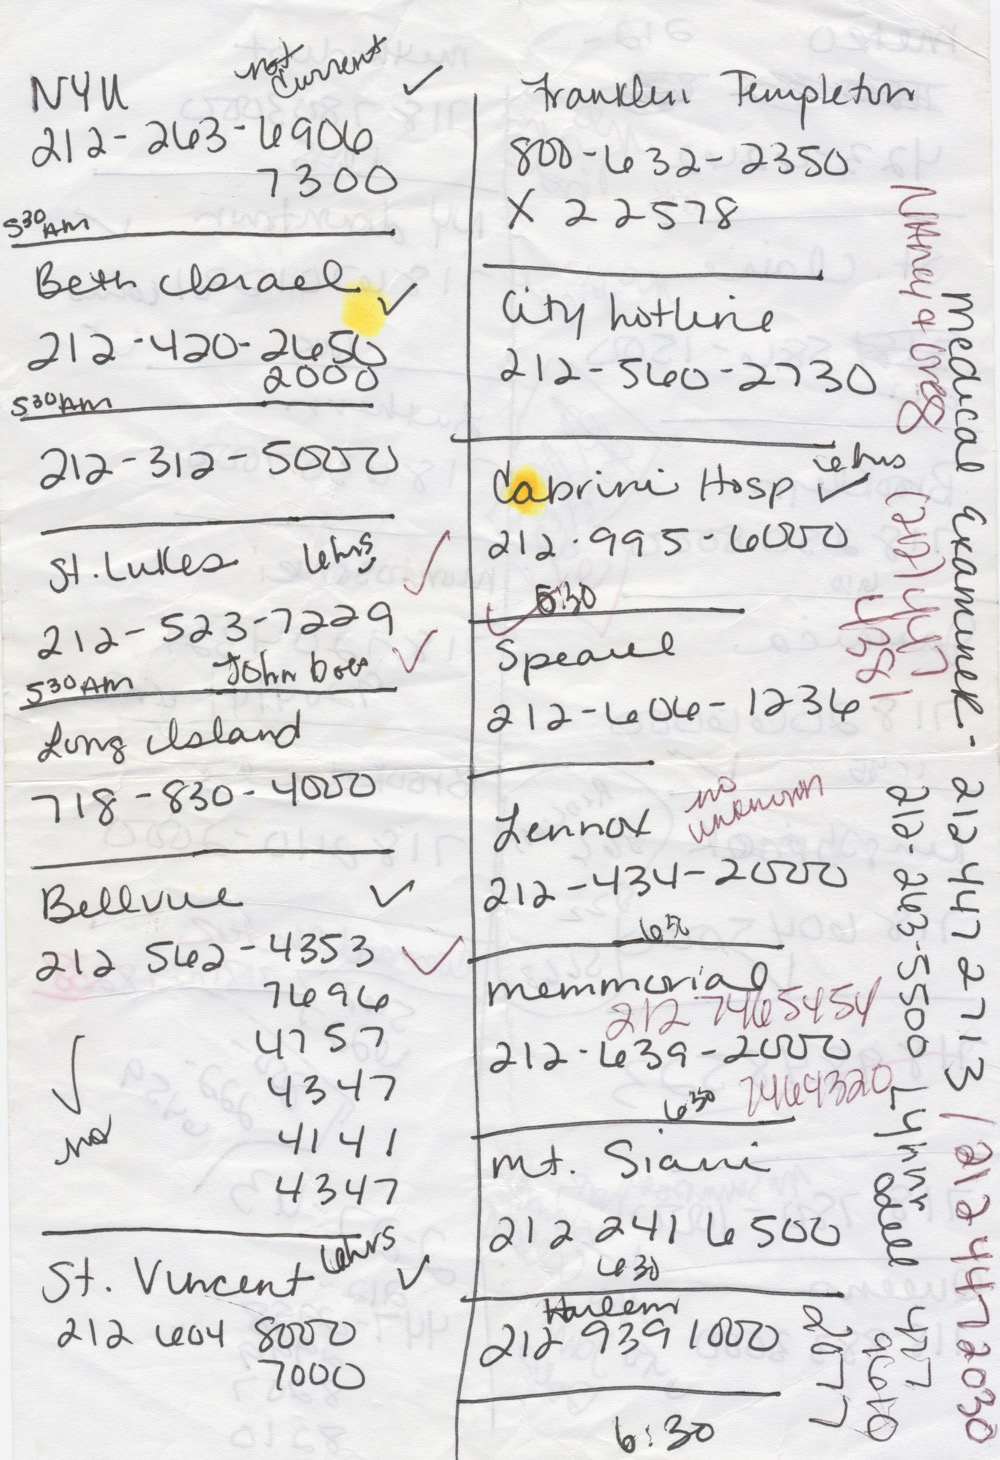 NYU
not
current
212-263-6906
7300
5 30 AM
Beth Israel
212-420-2650
2000
5 30 AM
212-312-5000
St. Lukes 6hrs
212-523-7229
John Does
5 30 AM
Long Island
718-830-4000
Bellvue
212 562-4353
7696
4757
4347
no
4141
4347
St. Vincent 6hrs
212 604 8000
7000
Franklin Templeton
800-632-2350
X 22578
City hotline
212-560-2730
Cabrini Hosp 6hrs
212.995-6000
6:30
Speauel
212-606-1236
Lennox
no
unknown
212-434-2000
6 30
memmorial
212 7465454
212-639-2000
7464320
6 30
mt. Siani
212 241 6500
6 30
Harlem
212 939 1000
6:30
medical examiner- 212 447 2713 / 212 447 2030
212-263-5500 Lynn Odell
(212) 447
4381
2077